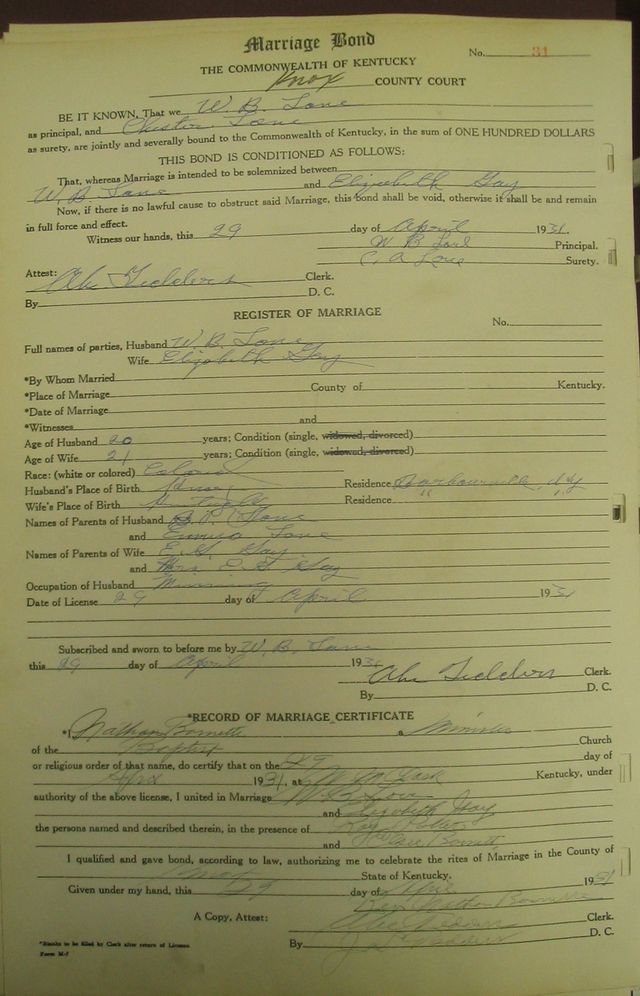 Marriage Bond
No. 31
THE COMMONWEALTH OF KENTUCKY
Knox COUNTY COURT
BE IT KNOWN, That we W. B. Lane
as principal, and Chester Lane
as surety, are jointly and severally bound to the Commonwealth of Kentucky, in the sum of ONE HUNDRED DOLLARS
THIS BOND IS CONDITIONED AS FOLLOWS:
That, whereas Marriage is intended to be solemnized between
W. B. Lane and Elizabeth Gay
Now, if there is no lawful cause to obstruct said Marriage, this bond shall be void, otherwise it shall be and remain
in full force and effect.
Witness our hands, this 29 day of April 1931.
W B Principal.
C. A Surety.
Attest: Clerk.
By D. C.
REGISTER OF MARRIAGE
No.
Full names of parties, Husband W. B. Lane
Wife Elizabeth Gay
*By Whom Married
*Place of Marriage County of Kentucky.
*Date of Marriage
*Witnesses and
Age of Husband 20 years; Condition (single, widowed, divorced)
Age of Wife 21 years; Condition (single, widowed, divorced)
Race: (white or colored) Colored
Husband's Place of Birth Residence Barbourville, Ky
Wife's Place of Birth Residence " "
Names of Parents of Husband Lane
and Lane
Names of Parents of Wife E. S. Gay
and Mrs E S Gay
Occupation of Husband Mining
Date of License 29 day of April 1931
Subscribed and sworn to before me by W. B. Lane
this 29 day of April 1931
Clerk.
By D. C.
*RECORD OF MARRIAGE CERTIFICATE
*I Nathan a Minister
of the Baptist Church
or religious order of that name, do certify that on the 29 day of
April 1931, at Kentucky, under
authority of the above license, I united in Marriage W B
and Elizabeth Gay
the persons named and described therein, in the presence of
and
I qualified and gave bond, according to law, authorizing me to celebrate the rites of Marriage in the County of
State of Kentucky.
Given under my hand, this 29 day of April 1931
A Copy, Attest: Clerk.
By D. C.
*Blanks to be filled by Clerk after return of License
Form M-7